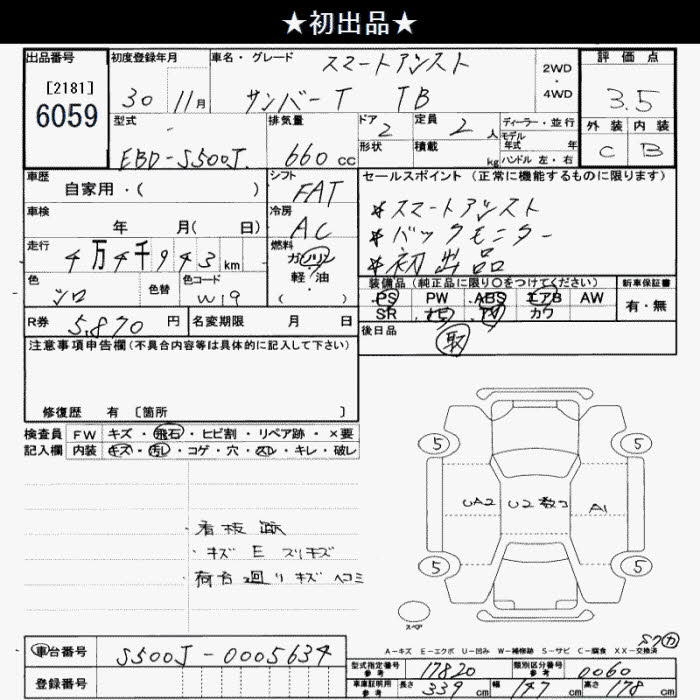 ★初出品★
出品番号 初度登録年月 車名・グレード スマートアシスト 2WD・4WD 評価点
[2181] 6059 30 11月 サンバーT TB 3.5
型式 排気量 ドア 2 定員 2人 ディーラー・並行 外装 内装
モデル年式 年
EBD-S500J 660cc 形状 積載 kg ハンドル 左・右 C B
車歴 シフト セールスポイント (正常に機能するものに限ります)
自家用・( ) FAT
車検 冷房 *スマートアシスト
年 月( 日) AC *バックモニター
走行 燃料 *初出品
4万4千943km ガソリン 軽・油 ( )
色 色替 色コード 装備品(純正品に限り○をつけてください) 新車保証書
シロ W19 PS PW ABS エアB AW 有・無
R券 5,870円 名変期限 月 日 SR ナビ カワ
注意事項申告欄(不具合内容等は具体的に記入して下さい) 後日品 取
修復歴 有 〔箇所 〕
検査員 FW キズ・飛石・ヒビ割・リペア跡・×要
記入欄 内装 キズ・汚レ・コゲ・穴・スレ・キレ・破レ
5 5
UA2 U2数コ A1
・看板跡
・キズ E スリキズ
・荷台廻りキズヘコミ
5 5
スペア
A-キズ E-エクボ U-凹み W-補修跡 S-サビ C-腐食 XX-交換済
車台番号 S500J-0005634 型式指定番号 参考 17820 類別区分番号 参考 0060
登録番号 車庫証明用 参考 長さ 339cm 幅 147cm 高さ 178cm